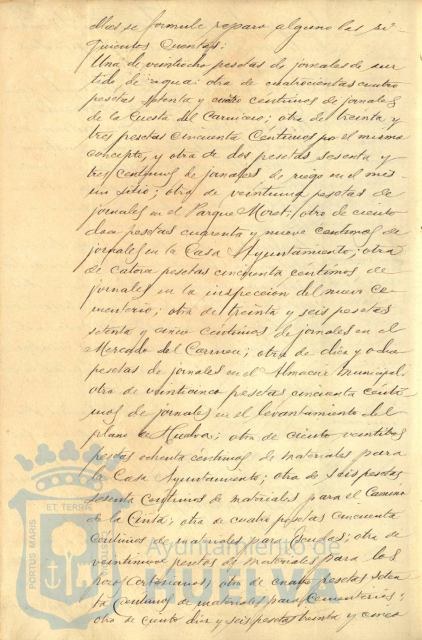 ellas se formule reparo alguno las si-
guientes cuentas:
Una de veintiocho pesetas de jornales de sur-
tido de agua: otra de cuatrocientas cuatro
pesetas setenta y cuatro céntimos de jornales
de la Cuesta del Carnicero; otra de treinta y
tres pesetas cincuenta céntimos por el mismo
concepto, y otra de dos pesetas sesenta y
tres céntimos de jornales de riego en el mis-
mo sitio; otra de veintiuna pesetas de
jornales en el Parque Moret; otra de ciento
doce pesetas cuarenta y nueve céntimos de
jornales en la Casa Ayuntamiento; otra
de catorce pesetas cincuenta céntimos de
jornales en la inspección del nuevo Ce-
menterio; otra de treinta y seis pesetas
setenta y cinco céntimos de jornales en el
Mercado del Carmen; otra de diez y ocho
pesetas de jornales en el Almacén Municipal;
otra de veinticinco pesetas cincuenta cénti-
mos de jornales en el levantamiento del
plano de Huelva; otra de ciento veintitres
pesetas ochenta céntimos de materiales para
la Casa Ayuntamiento; otra de seis pesetas
sesenta céntimos de materiales para el Camino
de la Cinta; otra de cuatro pesetas cincuenta
céntimos de materiales para; otra de
pesetas de materiales para los
; otra de cuatro pesetas seten-
ta céntimos de materiales para Cementerios;
otra de ciento diez y seis pesetas treinta y cinco
PORTUS MARIS ET TERRAE CUSTODIA
Ayuntamiento de
HUELVA